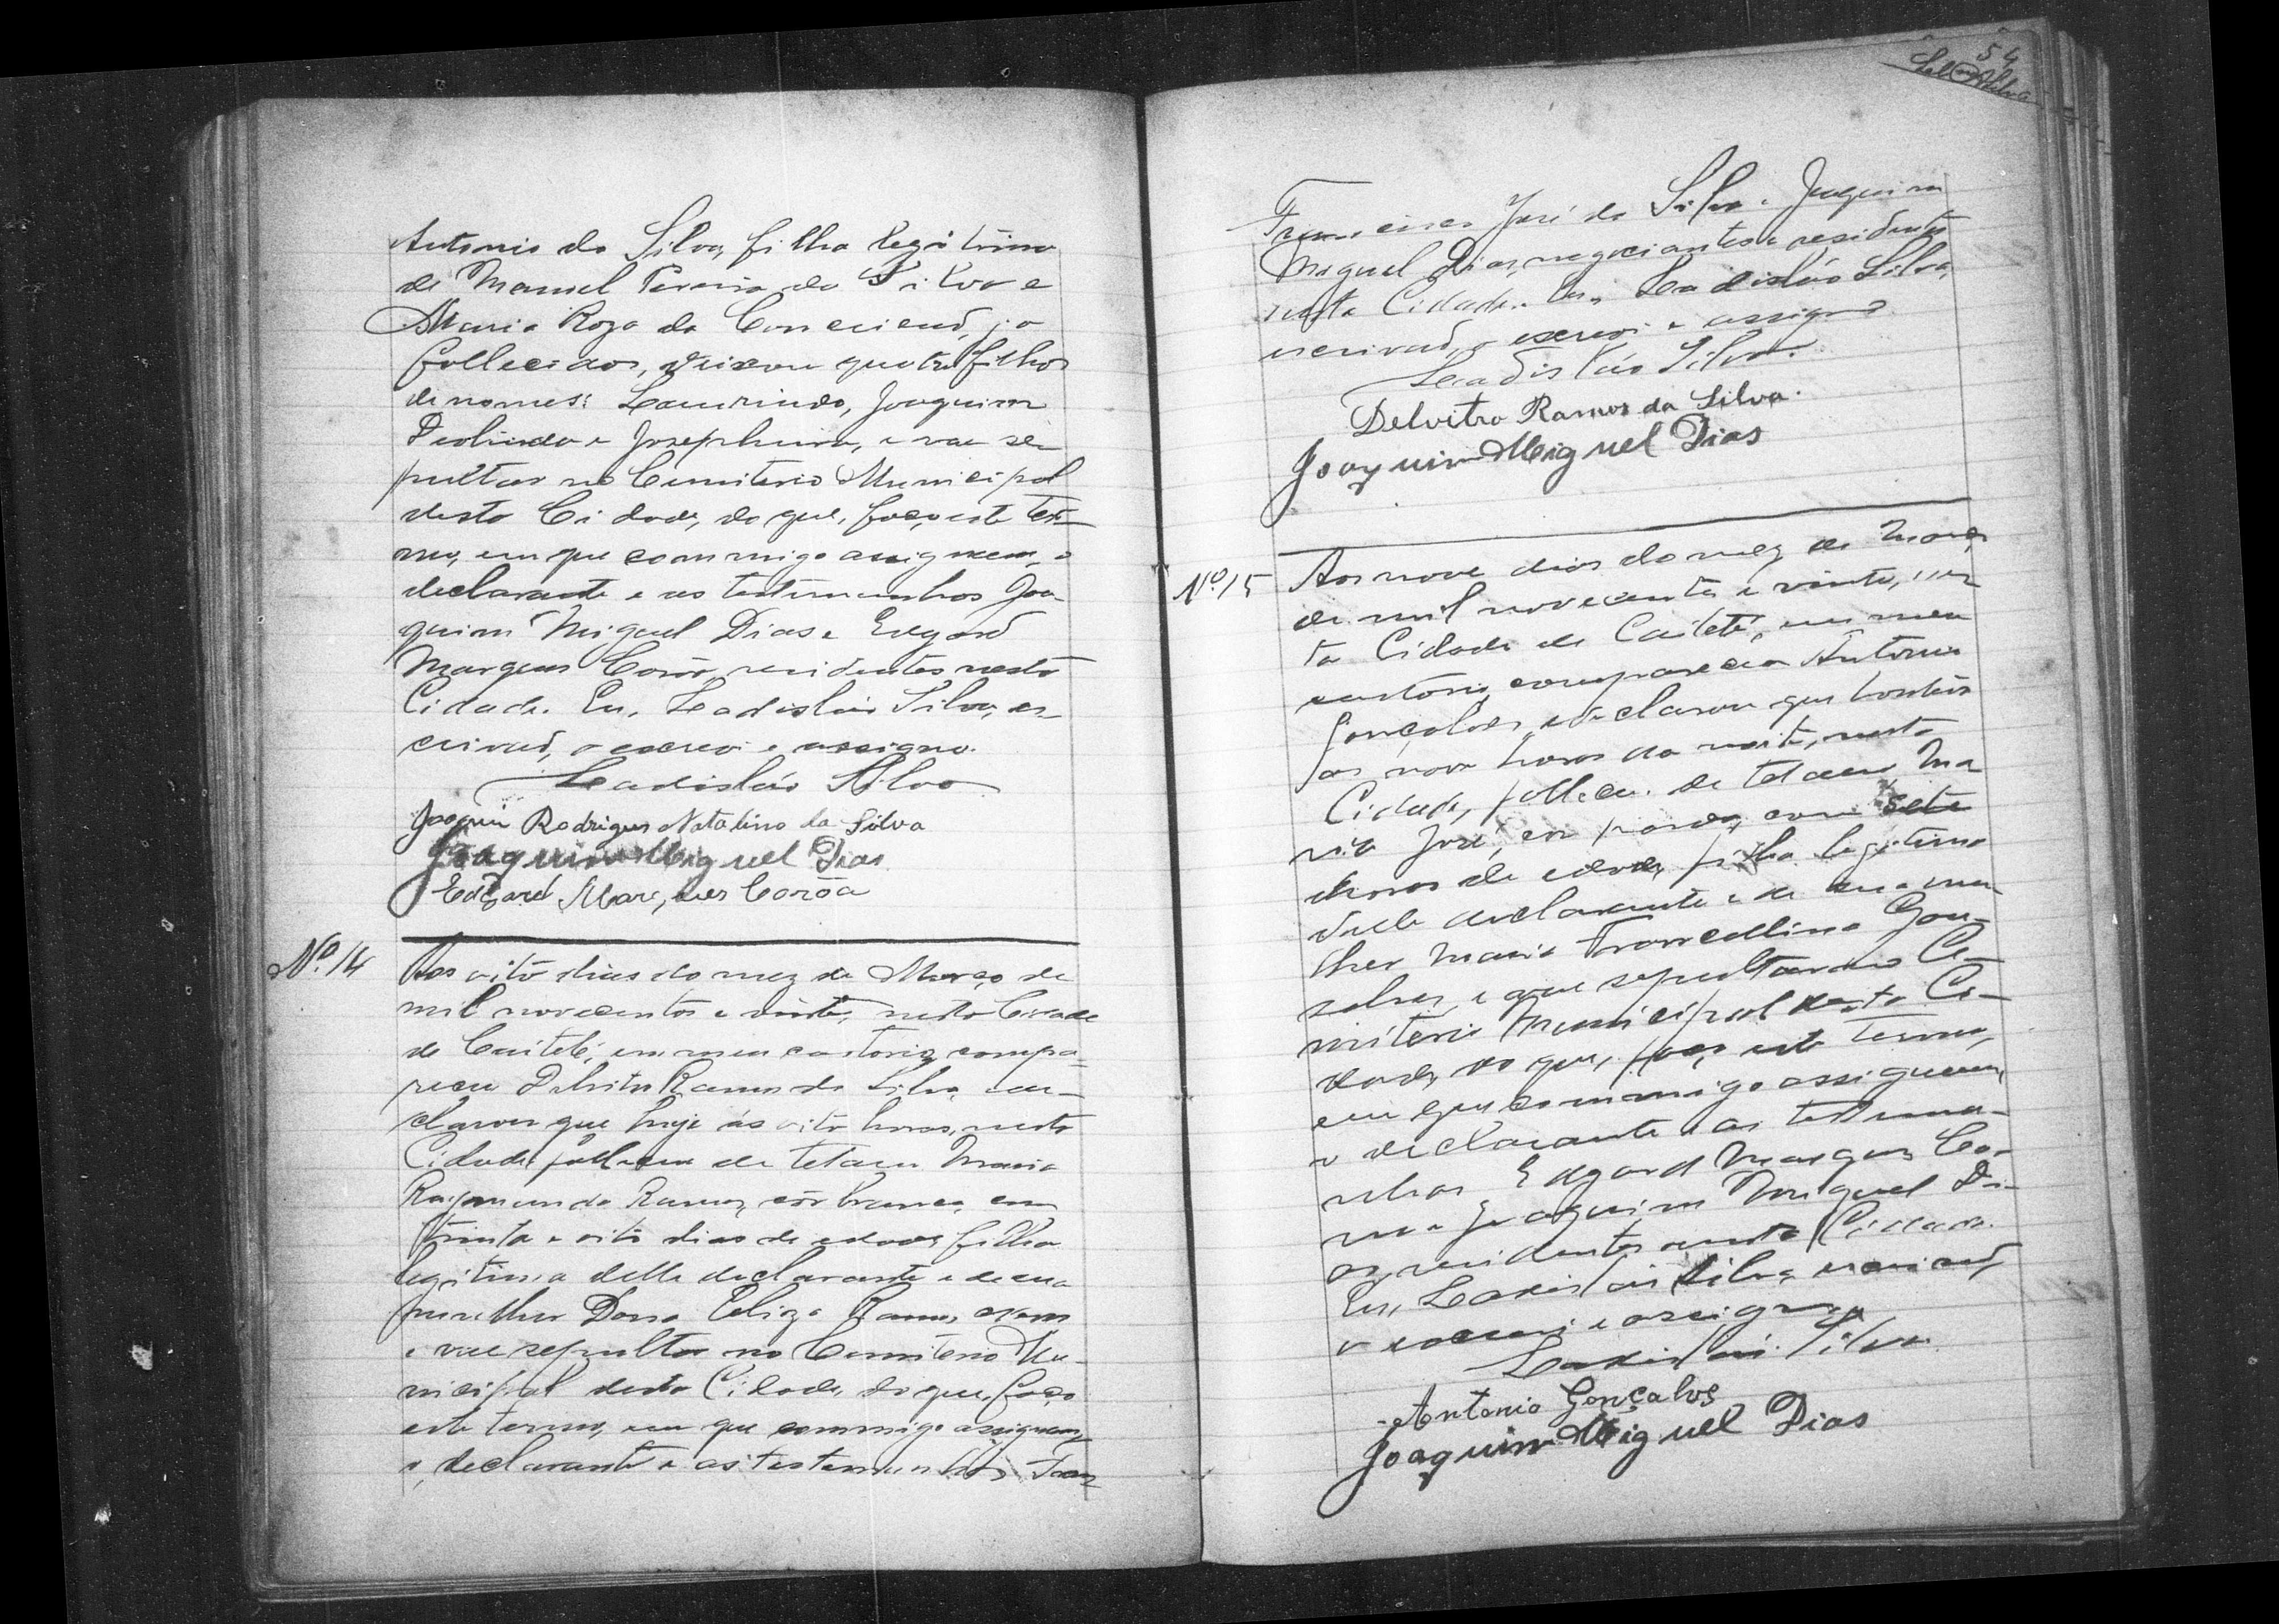 Antonio da Silva, filha legitima
de Manoel Pereira da Silva e
Maria Roza da Conceicaõ, já
fallecidos, deixou quatro filhos
de nomes: Laurindo, Joaquim
Deolinda e Josephina, e vae se
pultar no Cemiterio Municipal
desta Cidade, do que, faço este ter-
mo, em que commigo assignam, o
declarante e as testemunhas Joa-
quim Miguel Dias e Edgard
Marques Corôa, residentes nesta
Cidade. Eu, Ladisláo Silva, es-
crivaõ, o escrevi e assigno.
Ladisláo Silva
Joaquim Rodrigues Natalino da Silva
Joaquim Miguel Dias
Edgard Marques Corôa
Nº 14 Aos oito dias do mez de Março de
mil novecentos e vinte, nesta Cidade
de Caiteté, em meu cartorio, compa-
receu Delvitro Ramos da Silva, e de-
clarou que hoje ás oito horas, nesta
Cidade, falleceu de tetano Maria
Raymunda Ramos, côr branca, com
trinta e oito dias de edade, filha
legitima delle declarante e de sua
mulher Dona Ramos
e vae sepultar no Cemiterio Mu-
nicipal desta Cidade, do que, faço
este termo, em que commigo assignam,
o declarante e as testemunhas Fran-
54
Silva
Francisco José da Silva e Joaquim
Miguel Dias, negociantes e residentes
nesta Cidade. Eu, Ladisláo Silva,
escrivaõ, o escrevi e assigno.
Ladisláo Silva.
Delvitro Ramos da Silva.
Joaquim Miguel Dias
Nº 15 Aos nove dias do mez de Março
de mil novecentos e vinte, nes
ta Cidade de Caiteté, em meu
cartorio, compareceu Antonio
Gonçalves, e declarou que hontem
as nove horas da noite, nesta
Cidade, falleceu de tetano Ma
ria José, côr parda, com sete
de edade, filha legitima
delle declarante e de sua mu-
lher Maria Gon-
salves, e vae sepultar no Ce-
miterio Municipal desta Ci-
dade, do que, faço este termo,
em que commigo assignam,
o declarante e as testemu-
nhas Edgard Marques Co-
rôa e Joaquim Miguel Di-
as, residentes nesta Cidade.
Eu, Ladisláo Silva, escrivaõ,
o escrevi e assigno.
Ladisláo Silva.
Antonio Gonçalves
Joaquim Miguel Dias